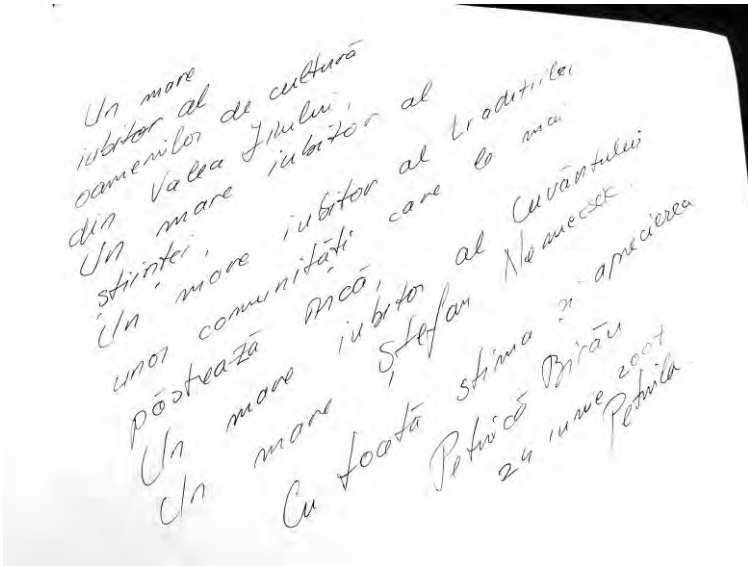 Un mare
iubitor al
oamenilor de cultură
din Valea Jiului,
Un mare iubitor al
științei,
Un mare iubitor al tradițiilor
unor comunități care le mai
păstrează încă,
Un mare iubitor al Cuvântului
Un mare Ștefan Nemecsek.
Cu toată stima și aprecierea
Petrică Birău
24 iunie 2007
Petrila